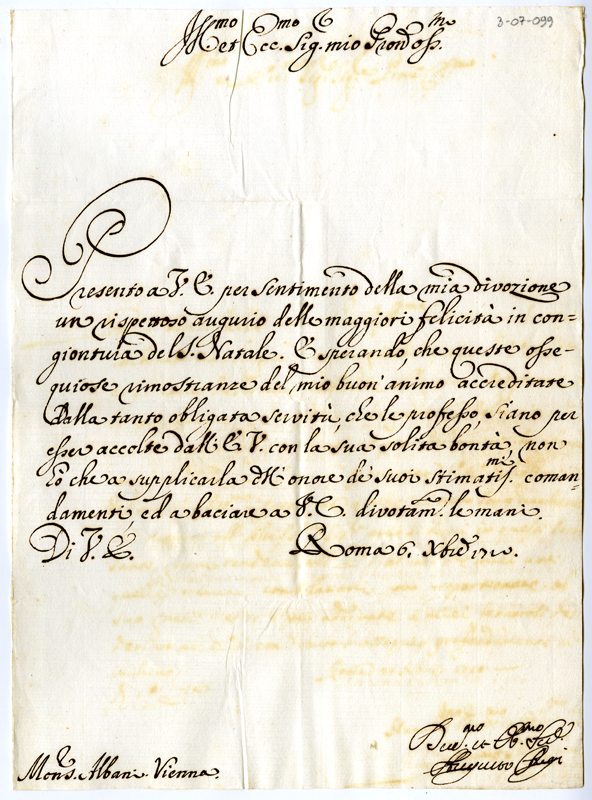 3-07-099
Ill.mo et Ecc.mo Sig.r mio Pron Oss.mo
Presento a V. E. per sentimento della mia divozione
un rispettoso augurio delle maggiori felicità in con=
giontura del S. Natale. E sperando, che queste osse=
quiose rimostranze del mio buon' animo accreditate
dalla tanto obligata servitù, che le professo, siano per
esser accolte dall' E V. con la sua solita bontà, non
hò che a supplicarla dell' onore de' suoi stimatis.mi coman=
damenti, ed a baciare a V. E. divotam.te le mani.
Di V. E.
Roma 6. Xbre 1710.
Mons.r Albani. Vienna.
Dev.mo et Ob.mo Ser.